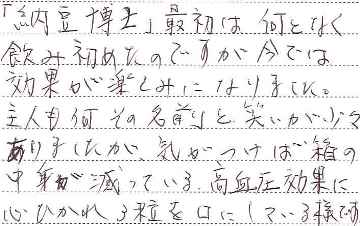 「納豆博士」最初は何となく
飲み初めたのですが今では
効果が楽しみになりました。
主人も何その名前」と笑いが少々
ありましたが、気がつけば箱の
中身が減っている 高血圧効果に
心ひかれ3粒を口にしている様です